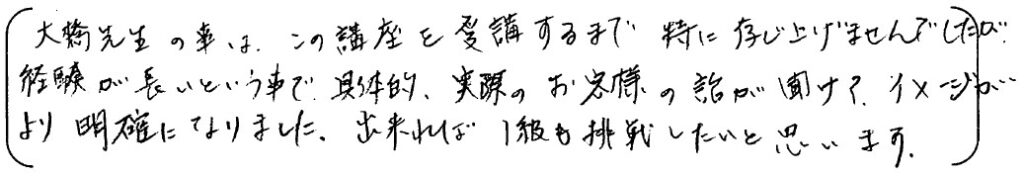 大橋先生の事は、この講座を受講するまで特に存じ上げませんでしたが、
経験が長いという事で、具体的、実際のお客様の話が聞けて、イメージが
より明確になりました。出来れば1級も挑戦したいと思います。